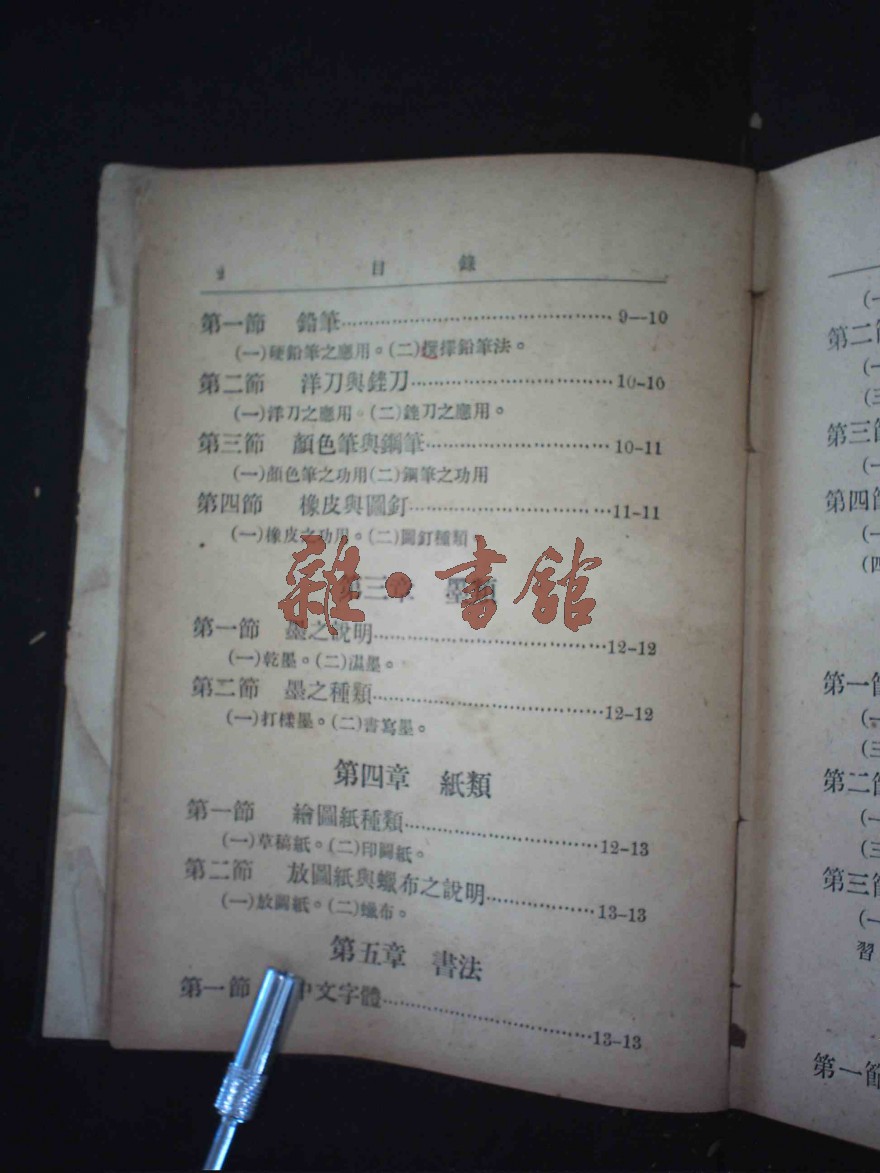 2 目錄
第一節 鉛筆……9—10
(一)硬鉛筆之應用。(二)選擇鉛筆法。
第二節 洋刀與銼刀……10-10
(一)洋刀之應用。(二)銼刀之應用。
第三節 顏色筆與鋼筆……10-11
(一)顏色筆之功用(二)鋼筆之功用
第四節 橡皮與圖釘……11-11
(一)橡皮之功用。(二)圖釘種類。
第三章 墨類
雜·書館
第一節 墨之說明……12-12
(一)乾墨。(二)濕墨。
第二節 墨之種類……12-12
(一)打樣墨。(二)書寫墨。
第四章 紙類
第一節 繪圖紙種類……12-13
(一)草稿紙。(二)印圖紙。
第二節 放圖紙與蠟布之說明……13-13
(一)放圖紙。(二)蠟布。
第五章 書法
第一節 中文字體……13-13
(一
第二節
(一
(三
第三節
(一
第四節
(一
(四
第一節
(一
(三
第二節
(一
(三
第三節
(一
習
第一節